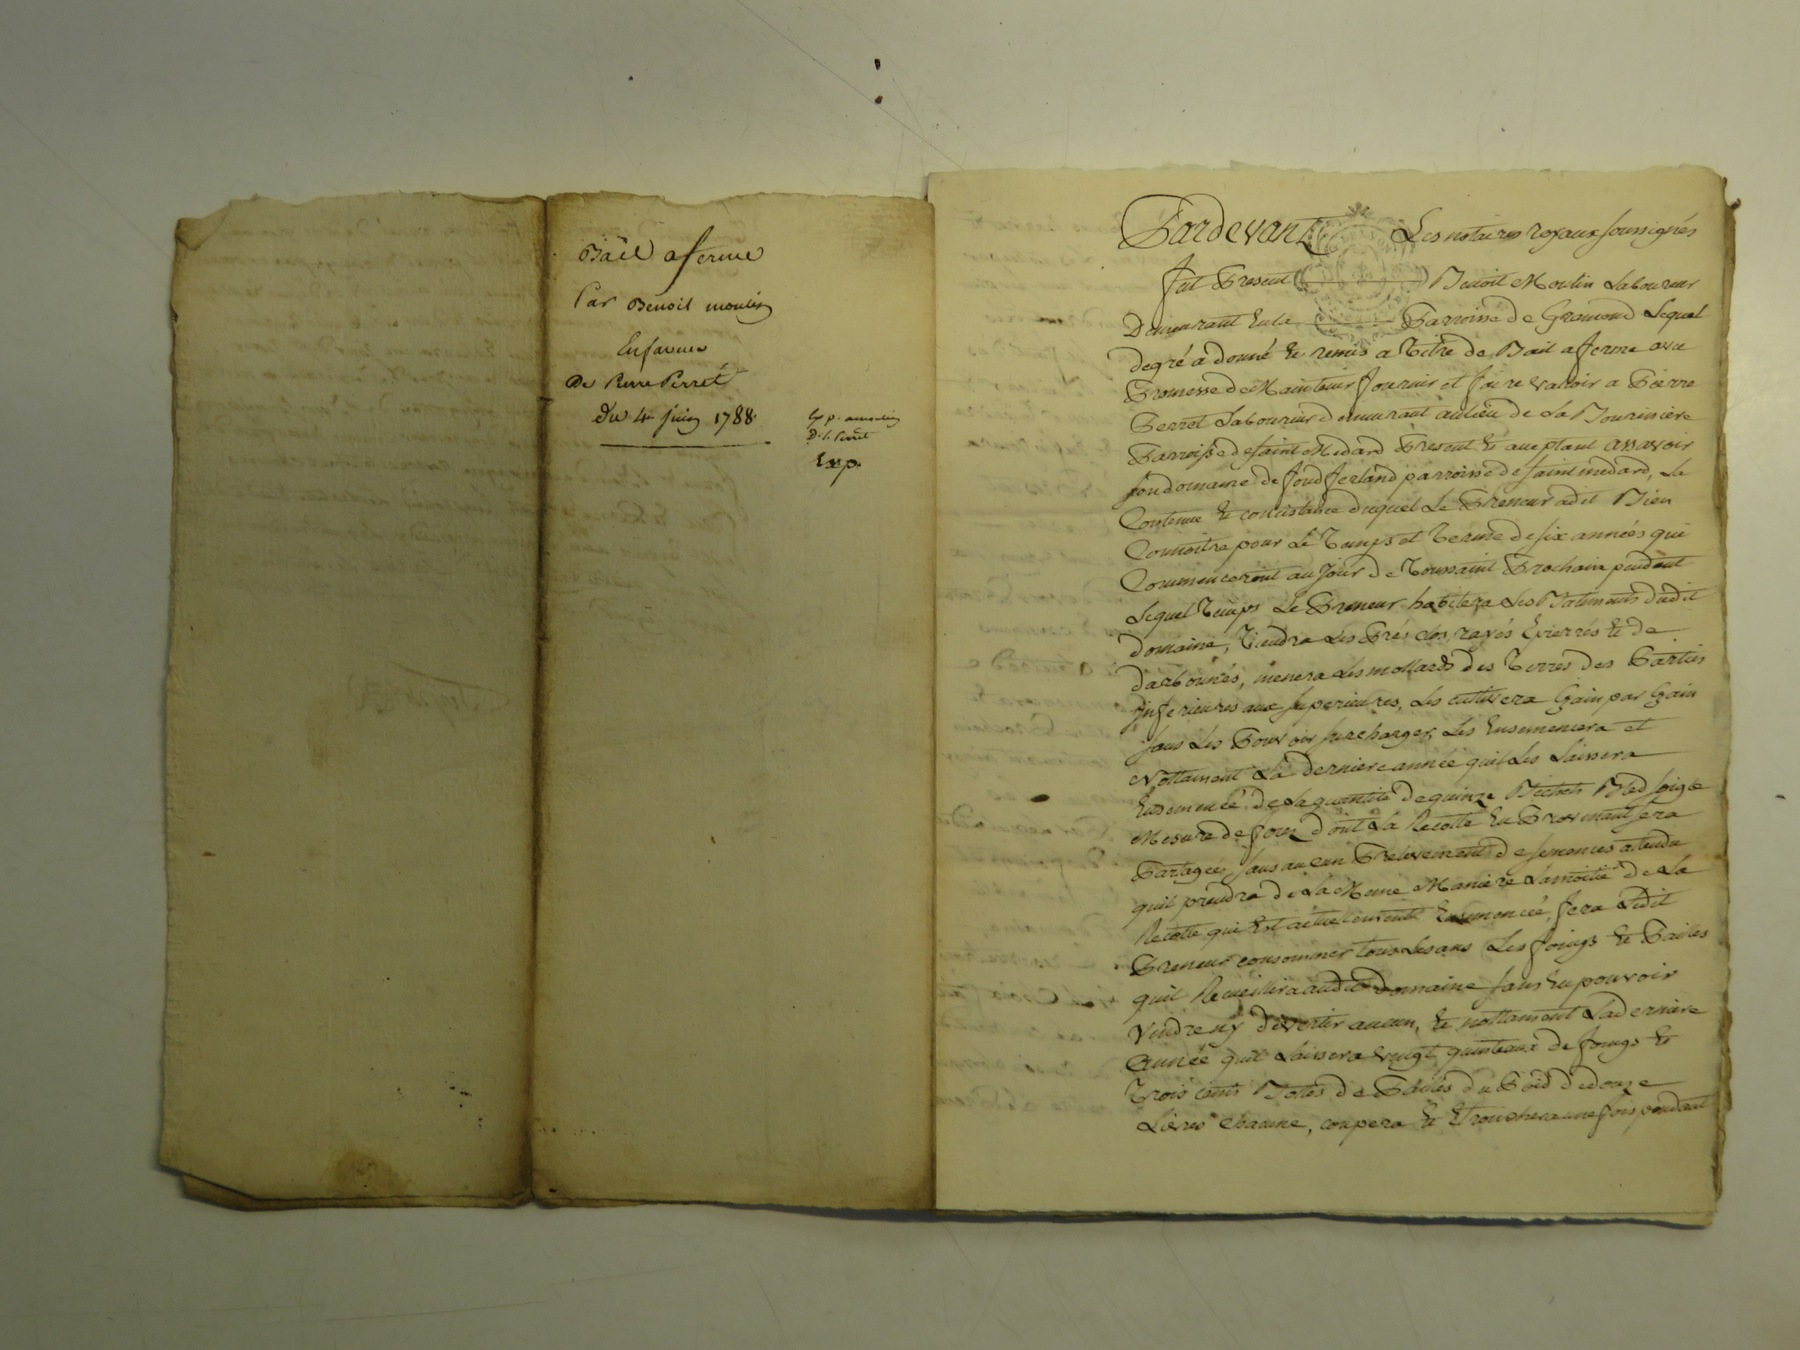 Bail a ferme
Par Benoit moulin
En faveur
De Pierre Perret
du 4e juin 1788
Exp. p. moulin
Exp.
Pardevant Les notaires royaux soussignés
fut Present Benoit Moulin Laboureur
Demeurant En la Parroisse de Gramond Lequel
de gré a donné et remis a Titre de Bail a ferme avec
Promesse de Maintenir fournir et faire valoir a Pierre
Perret Laboureur demeurant au lieu de La Tourinsiere
Parroisse de saint Medard Present et acceptant assavoir
son domaine de fond parroisse de saint medard, Le
Contenue et concistance duquel Le Preneur a dit Bien
Connoitre pour Le Temps et Terme de six années qui
Commenceront au Jour de Toussaint Prochain pendant
Lequel Temps Le Preneur habitera Les Batiments dudit
domaine, Tiendra Les Prés clos, rayés Epierrés et de
darbounés, menera Les mollards des Terres des Parties
Inferieures aux superieures, Les cultivera Gain par Gain
sans Les Pouvoir surcharger, Les Ensemencera et
Nottament La derniere année quil Les Laissera
Ensemencé de La quantité de quinze Bichets Bled seigle
Mesure de foruz dont La Recolte En Provenant sera
Partagée, sans aucun Prelevement de semences attendu
quil prendra de La Meme Maniere La moitié de La
Recolte qui Est actuelement Ensemencée, fera Ledit
Preneur consommer tous Les ans Les foings et Pailles
quil Recueillira audit domaine sans En pouvoir
Vendre ny divertir aucun, et nottament La derniere
Année quil Laissera vingt quinteaux de foings et
Trois cents Bottes de Pailles du Poid de douze
Livres chacune, coupera et Tronchera une fois pendant